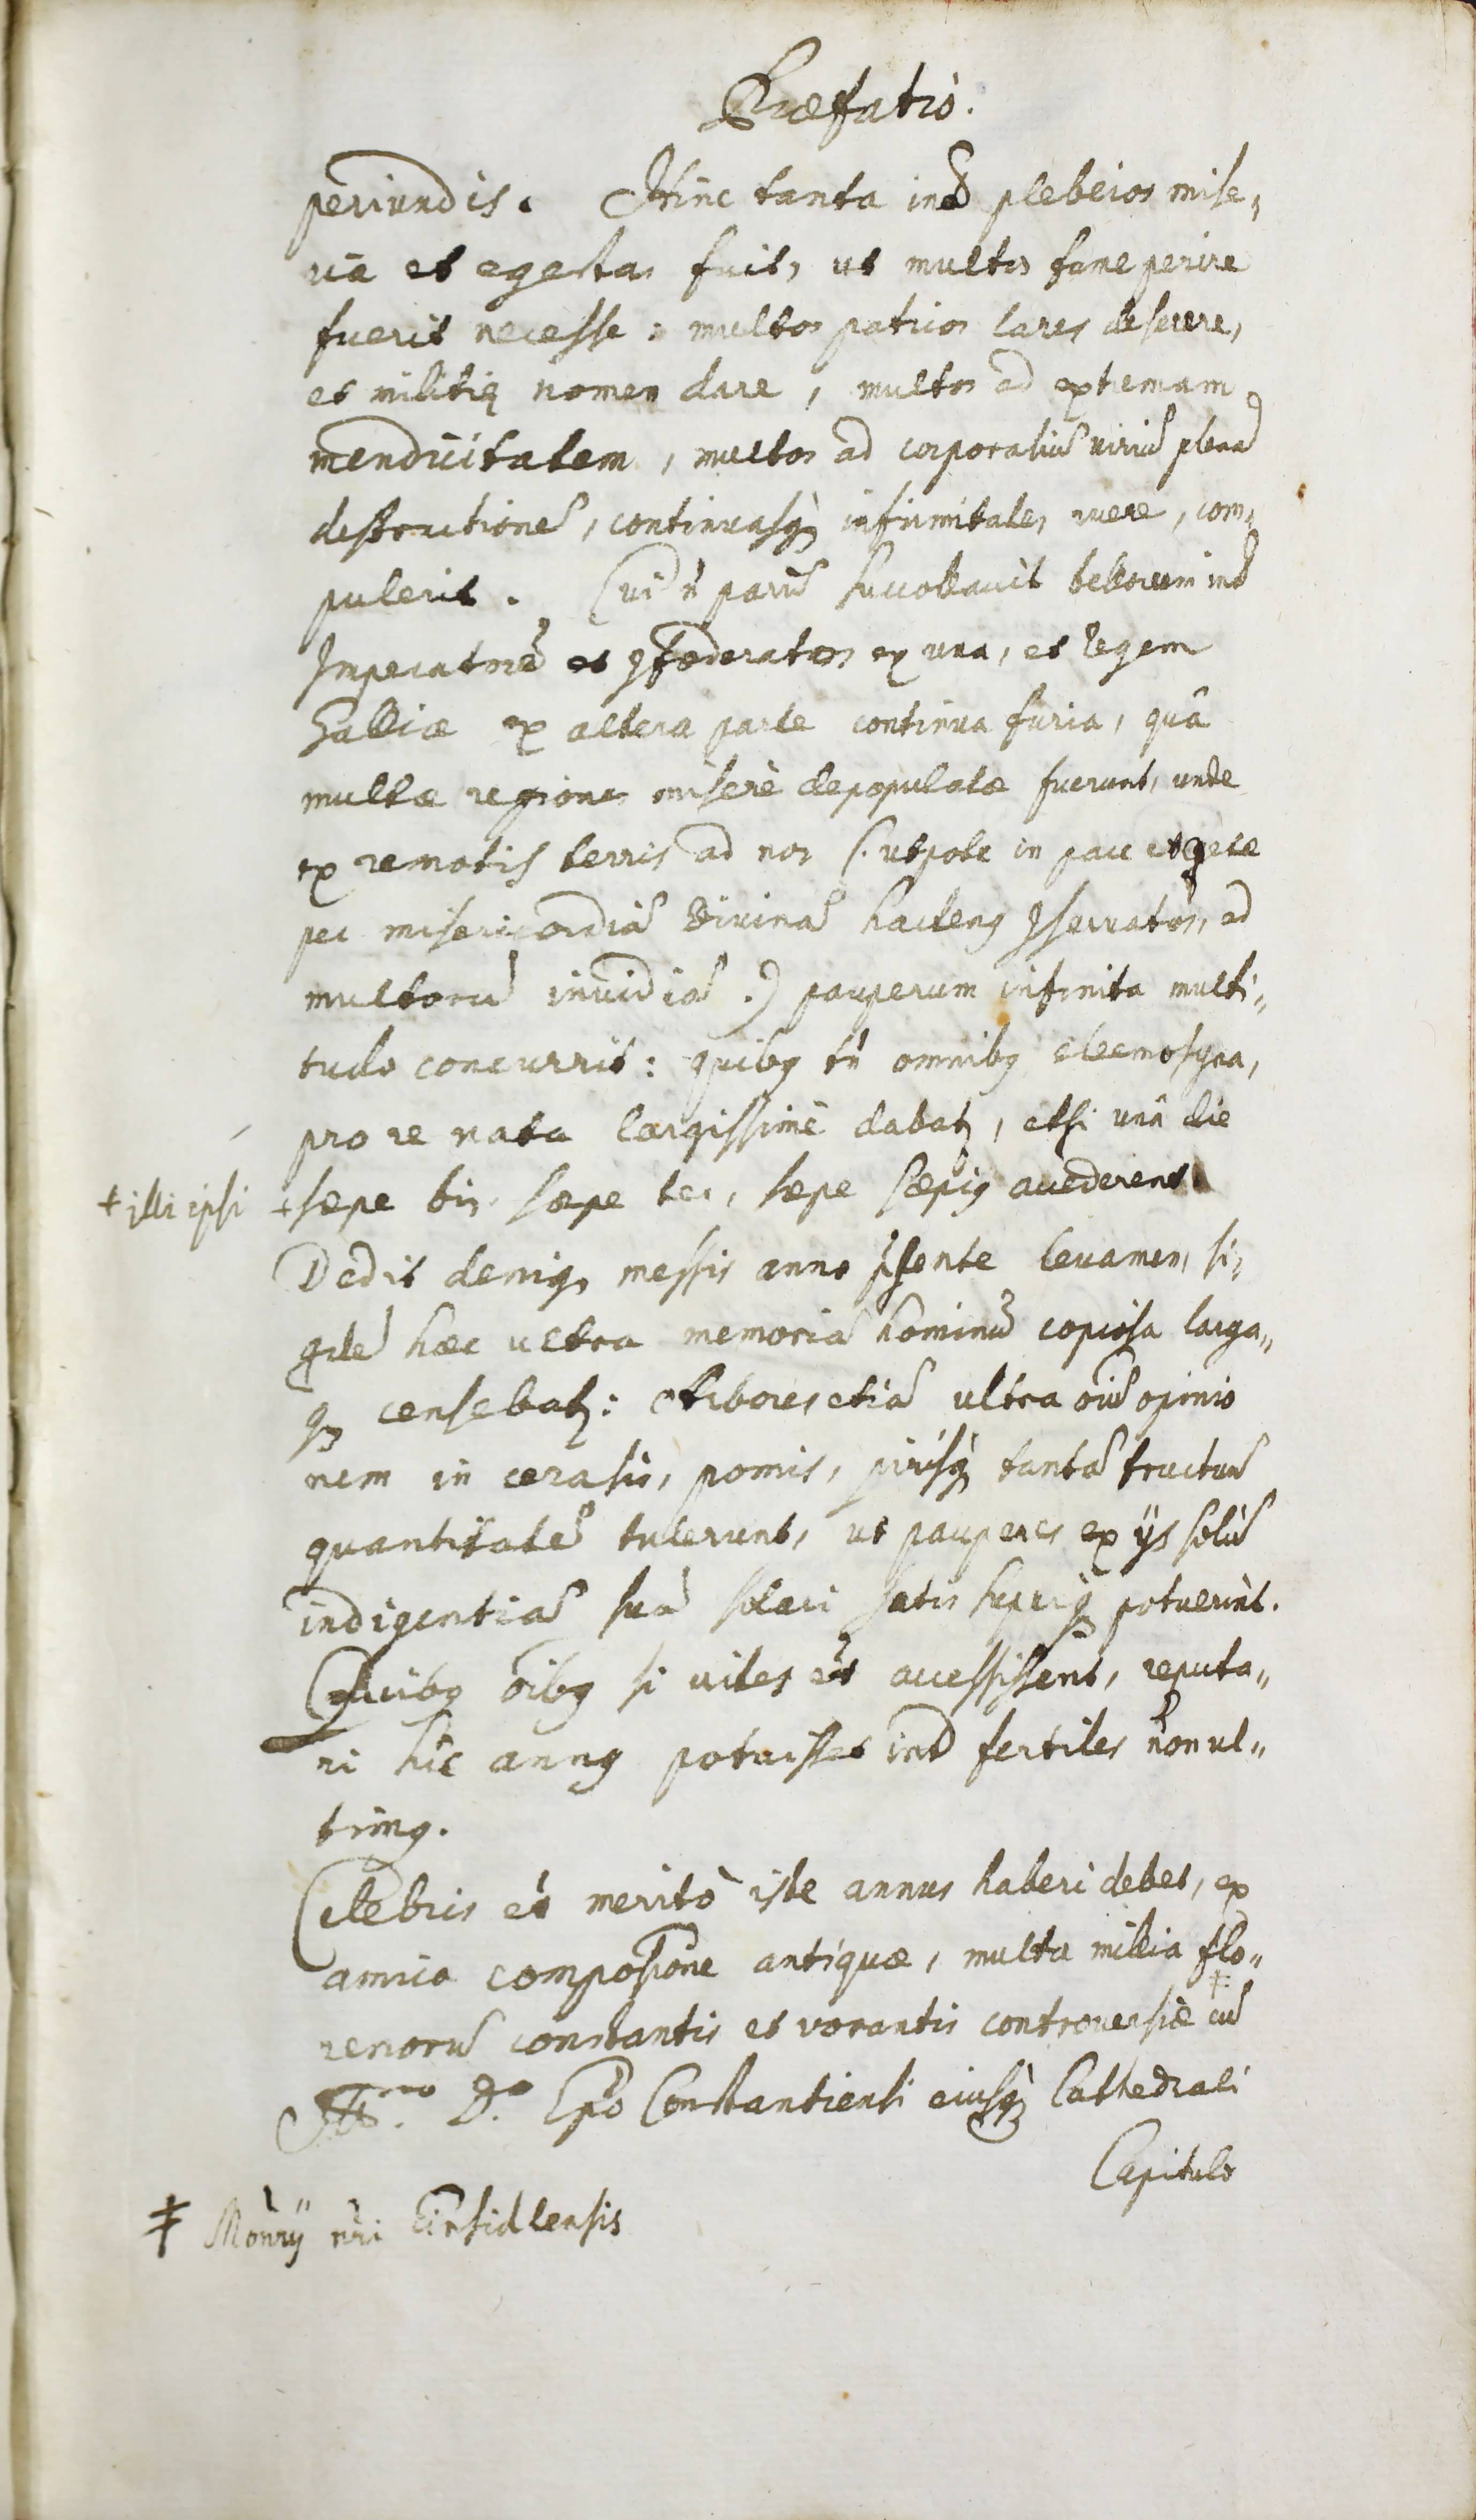 Præfatio.
periundis. Hinc tanta int̃ plebeios mise„
ria et egestas fuit, ut multos fame perire
fuerit necesse: multos patrios lares deserere,
et militię nomen dare, multos ad extremam
mendicitatem, multos ad corporaliũ viriũ plenã
destructionẽ, continuasq́; infirmitates ruere, com„
puleris. Cui ñ parũ succollavit bellorum int̃
Imperatorẽ et ꝯfœderatos ex una, et regem
Galliæ ex altera parte continua furia, quâ
multæ regiones miserè depopulatæ fuerunt, unde
ex remotis terris ad nos (. utpote in pace et quiete
per misericordiã Divinã hactenꝰ ꝯservatos, ad
multorũ invidiã .) pauperum infinita multi„
tudo concurrit: quibꝰ tñ omnibꝰ eleemosyna,
pro re nata largissimè dabat̃, etsi unâ die
+ illi ipsi
+ sæpe bis, sæpe ter, sæpe sæpiꝰ accederent.
Dedit deniq; messis anno p̃sente levamen, si„
qdẽ hæc ultra memoriã hominũ copiosa larga„
q; censebat̃: Arbores etiã ultra oĩũ opinio
nem in cerasis, pomis, pirisq́; tantã fructuũ
quantitatẽ tulerunt, ut pauperes ex ijs solũ
indigentiã suã solari satis superq́; potuerint.
Quibꝰ oĩbꝰ si vites et̃ accessissent, reputa„
ri hic annꝰ potuisset int̃ fertiles non ul„
timꝰ.
Celebris et̃ meritò iste annus haberi debet, ex
amica compositione antiquæ, multa millia flo„
renorũ constantis et vorantis controversiæ ‡ cũ
D. Epõ Constantiensi eiusq́; Cathedrali
Capitulo
‡ Moñrij ñri Einsidlensis